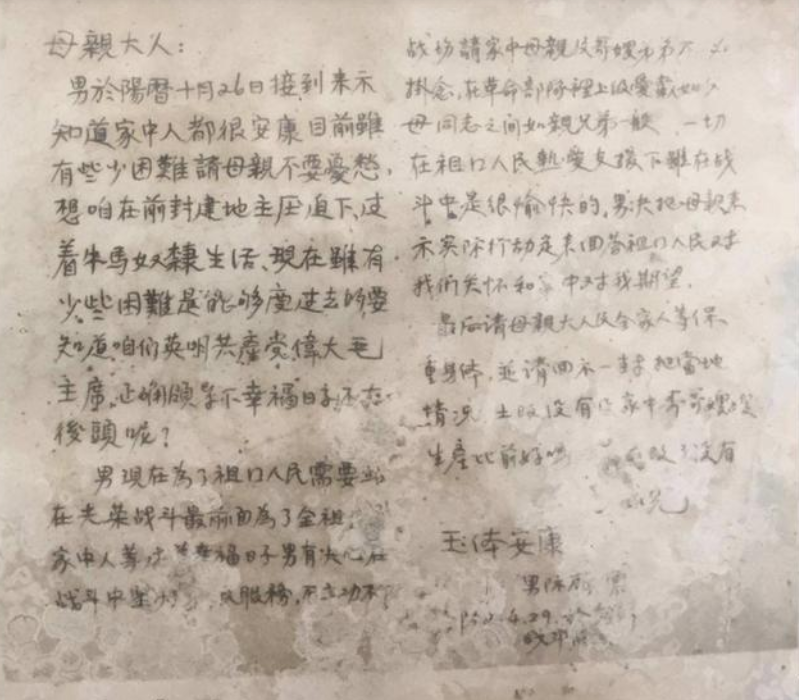 母親大人：
男於陽曆十月26日接到来示
知道家中人都很安康目前雖
有些少困難請母親不要憂愁,
想咱在前封建地主压迫下,过
着牛馬奴隸生活、現在雖有
少些困難是能够度过去的要
知道咱们英明共產党偉大毛
主席,正确領导下幸福日子还在
後頭呢?
男現在為了祖口人民需要站
在光荣战斗最前面為了全祖
家中人等 幸福日子男有决心在
战斗中 服務,不立功不
战场請家中母親及哥嫂
掛念,在革命部隊裡上级愛戴如父
母同志之间如親兄弟一般 一切
在祖口人民熱愛支援下雖在战
斗中是很愉快的,男决把母親来
示实际行动定来回答祖口人民对
我们关怀和家中对我期望.
最后请母親大人及全家人等保
重身体,並请回示一封把當地
情况 土改没有 家中哥哥嫂嫂
生產比前好吗 没有
玉体安康
男
4.29.於